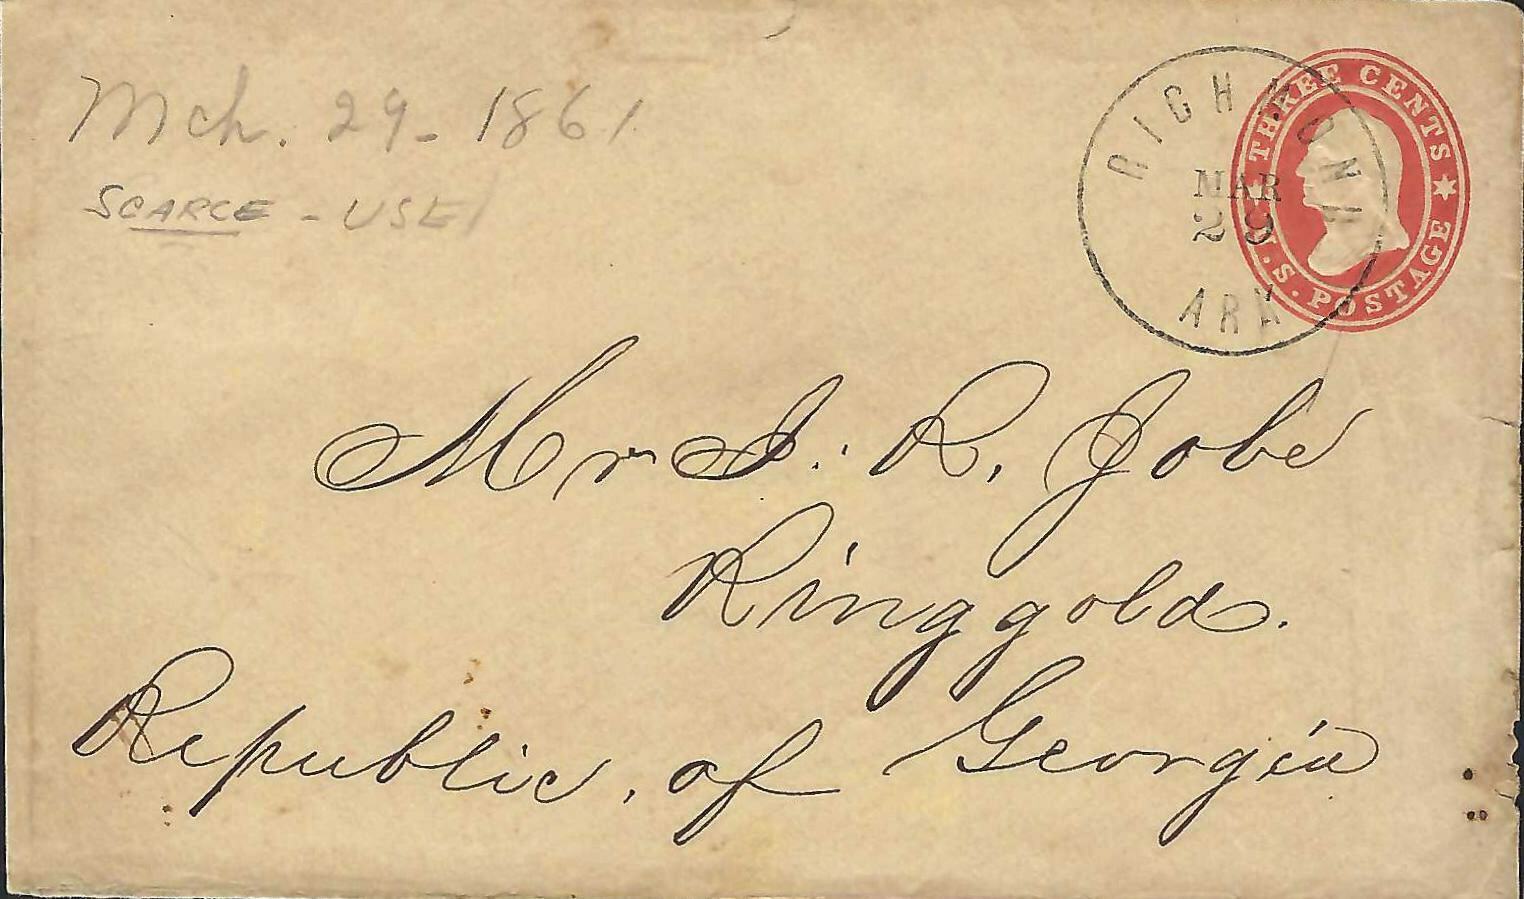 Mch. 29 - 1861
SCARCE - USE
RICHMOND
MAR
29
ARK
THREE CENTS
U.S. POSTAGE
Mr J. R. Jobe
Ringgold.
Republic, of Georgia